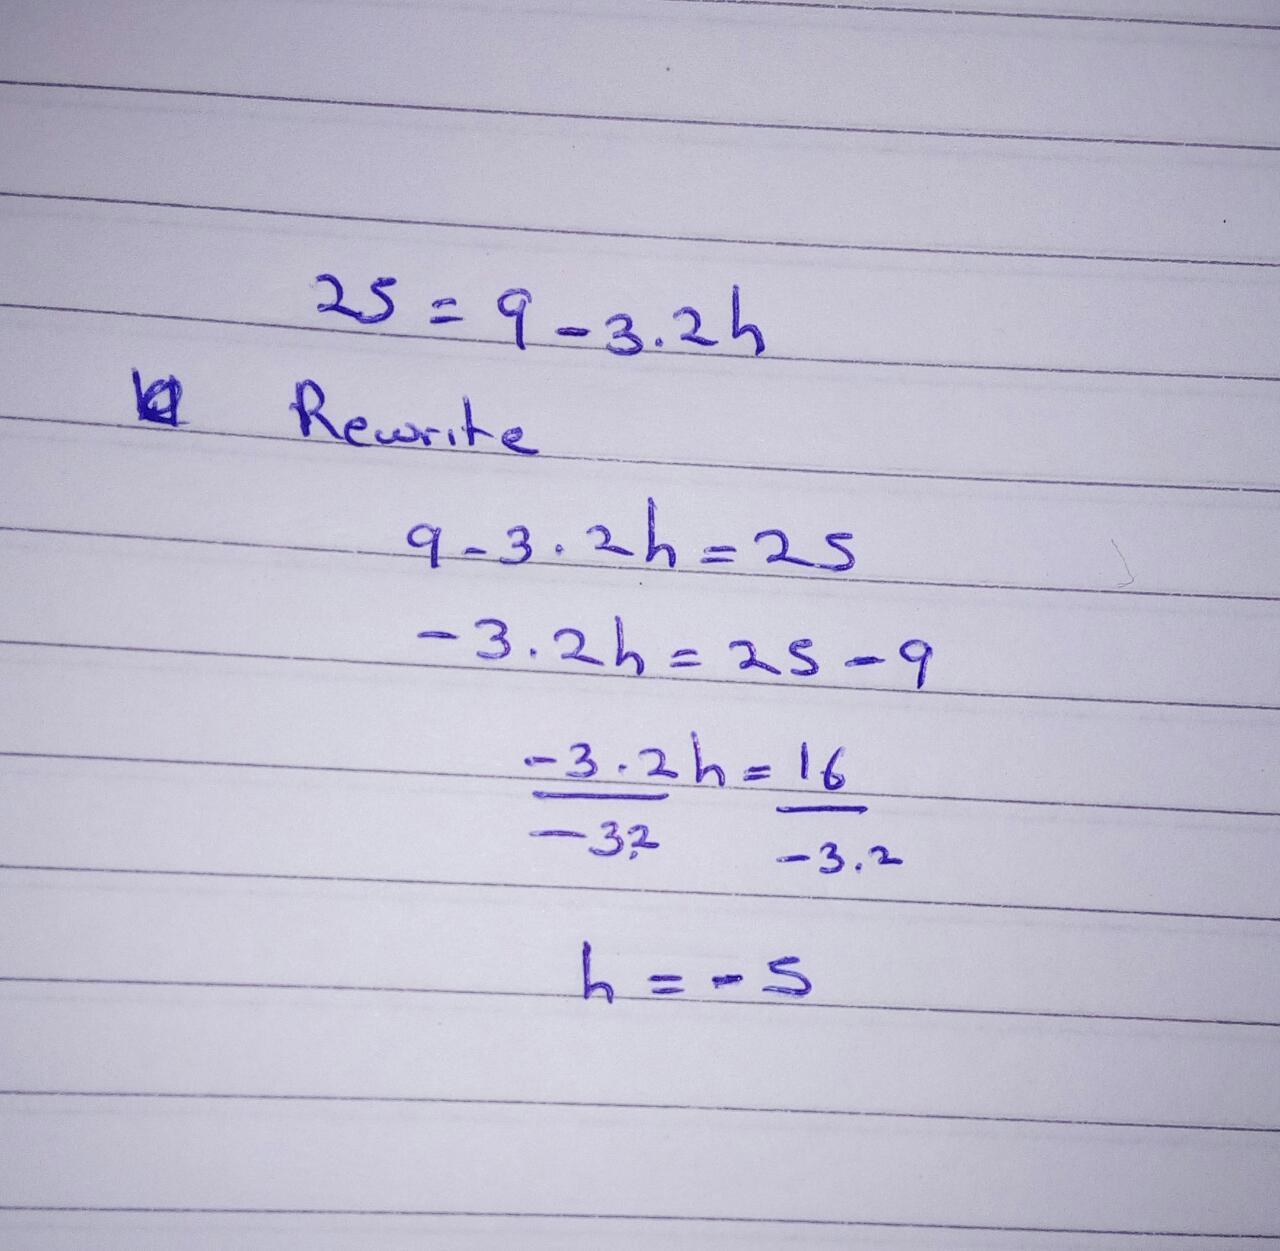 25 = 9 - 3.2h
Rewrite
9 - 3.2h = 25
- 3.2h = 25 - 9
- 3.2h = 16
- 3.2 - 3.2
h = - 5